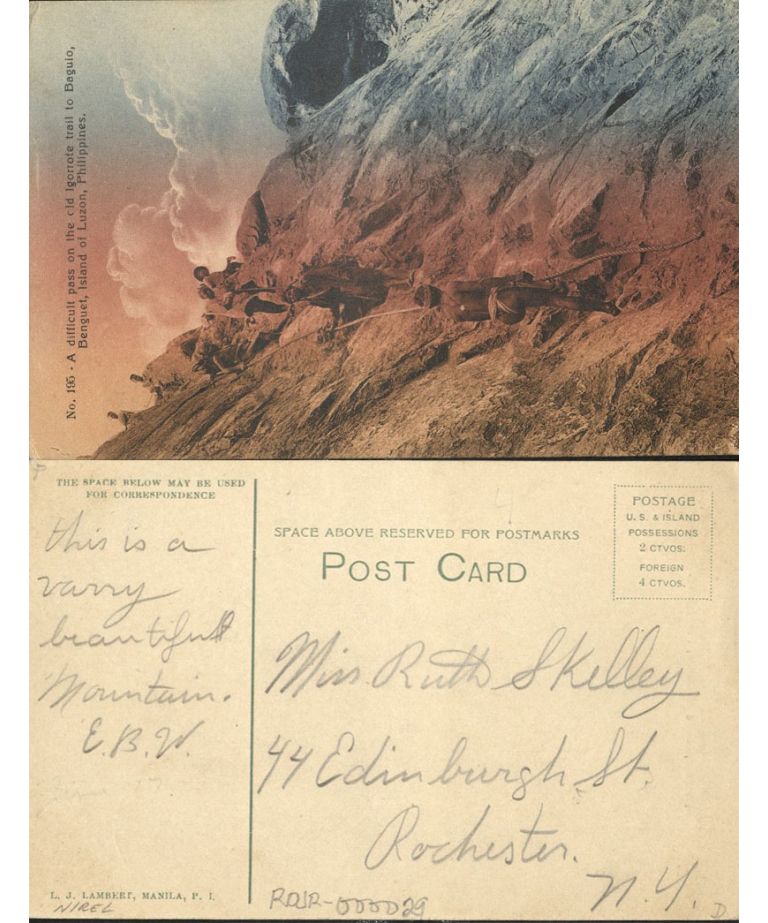 No. 195 - A difficult pass on the old Igorrote trail to Baguio,
Benguet, Island of Luzon, Philippines.
THE SPACE BELOW MAY BE USED
FOR CORRESPONDENCE
this is a
varry
beautifull
Mountain.
E.B.W.
L. J. LAMBERT, MANILA, P. I.
NIREL
SPACE ABOVE RESERVED FOR POSTMARKS
POST CARD
POSTAGE
U. S. & ISLAND
POSSESSIONS
2 CTVOS:
FOREIGN
4 CTVOS.
4
Miss Ruth Skelley
44 Edinburgh St.
Rochester.
N.Y.
D